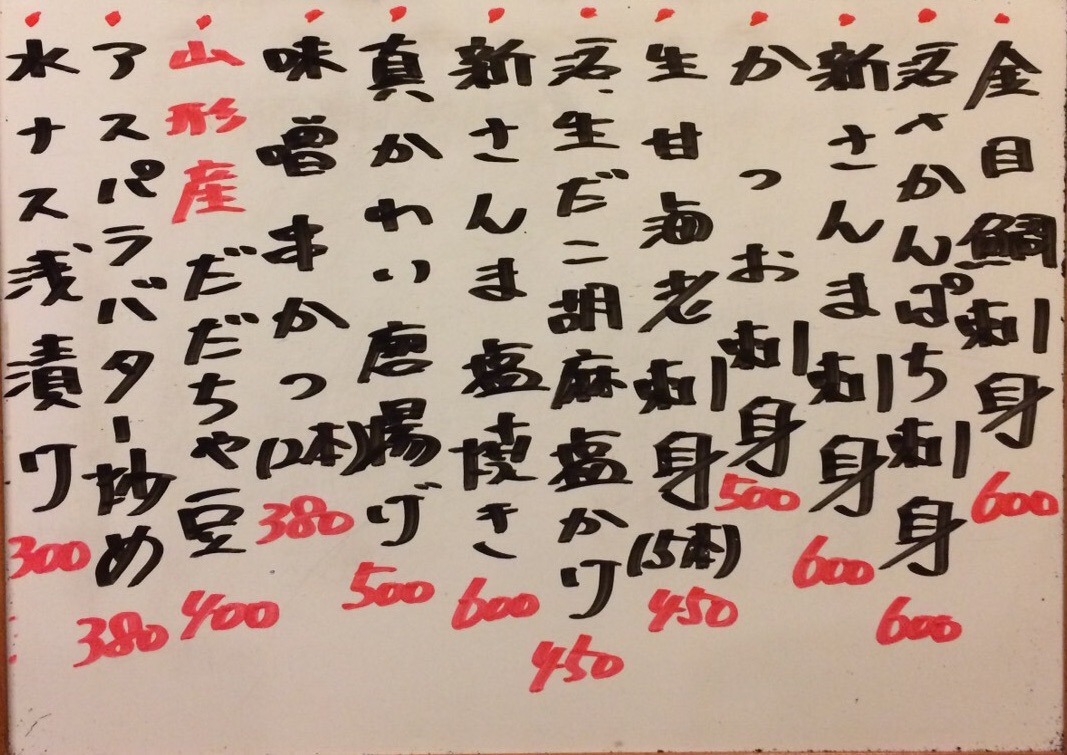 金目鯛刺身 600
活〆かんぱち刺身 600
新さんま刺身 600
かつお刺身 500
生甘海老刺身(5本) 450
活生だこ胡麻塩かり 450
新さんま塩焼き 600
真かわい唐揚げ 500
味噌串かつ(2本) 380
山形産だだちゃ豆 400
アスパラバター炒め 380
水ナス浅漬り 300